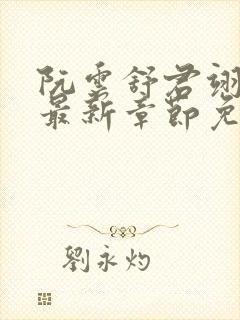 阮雲舒君翊
最新章節免
劉永灼